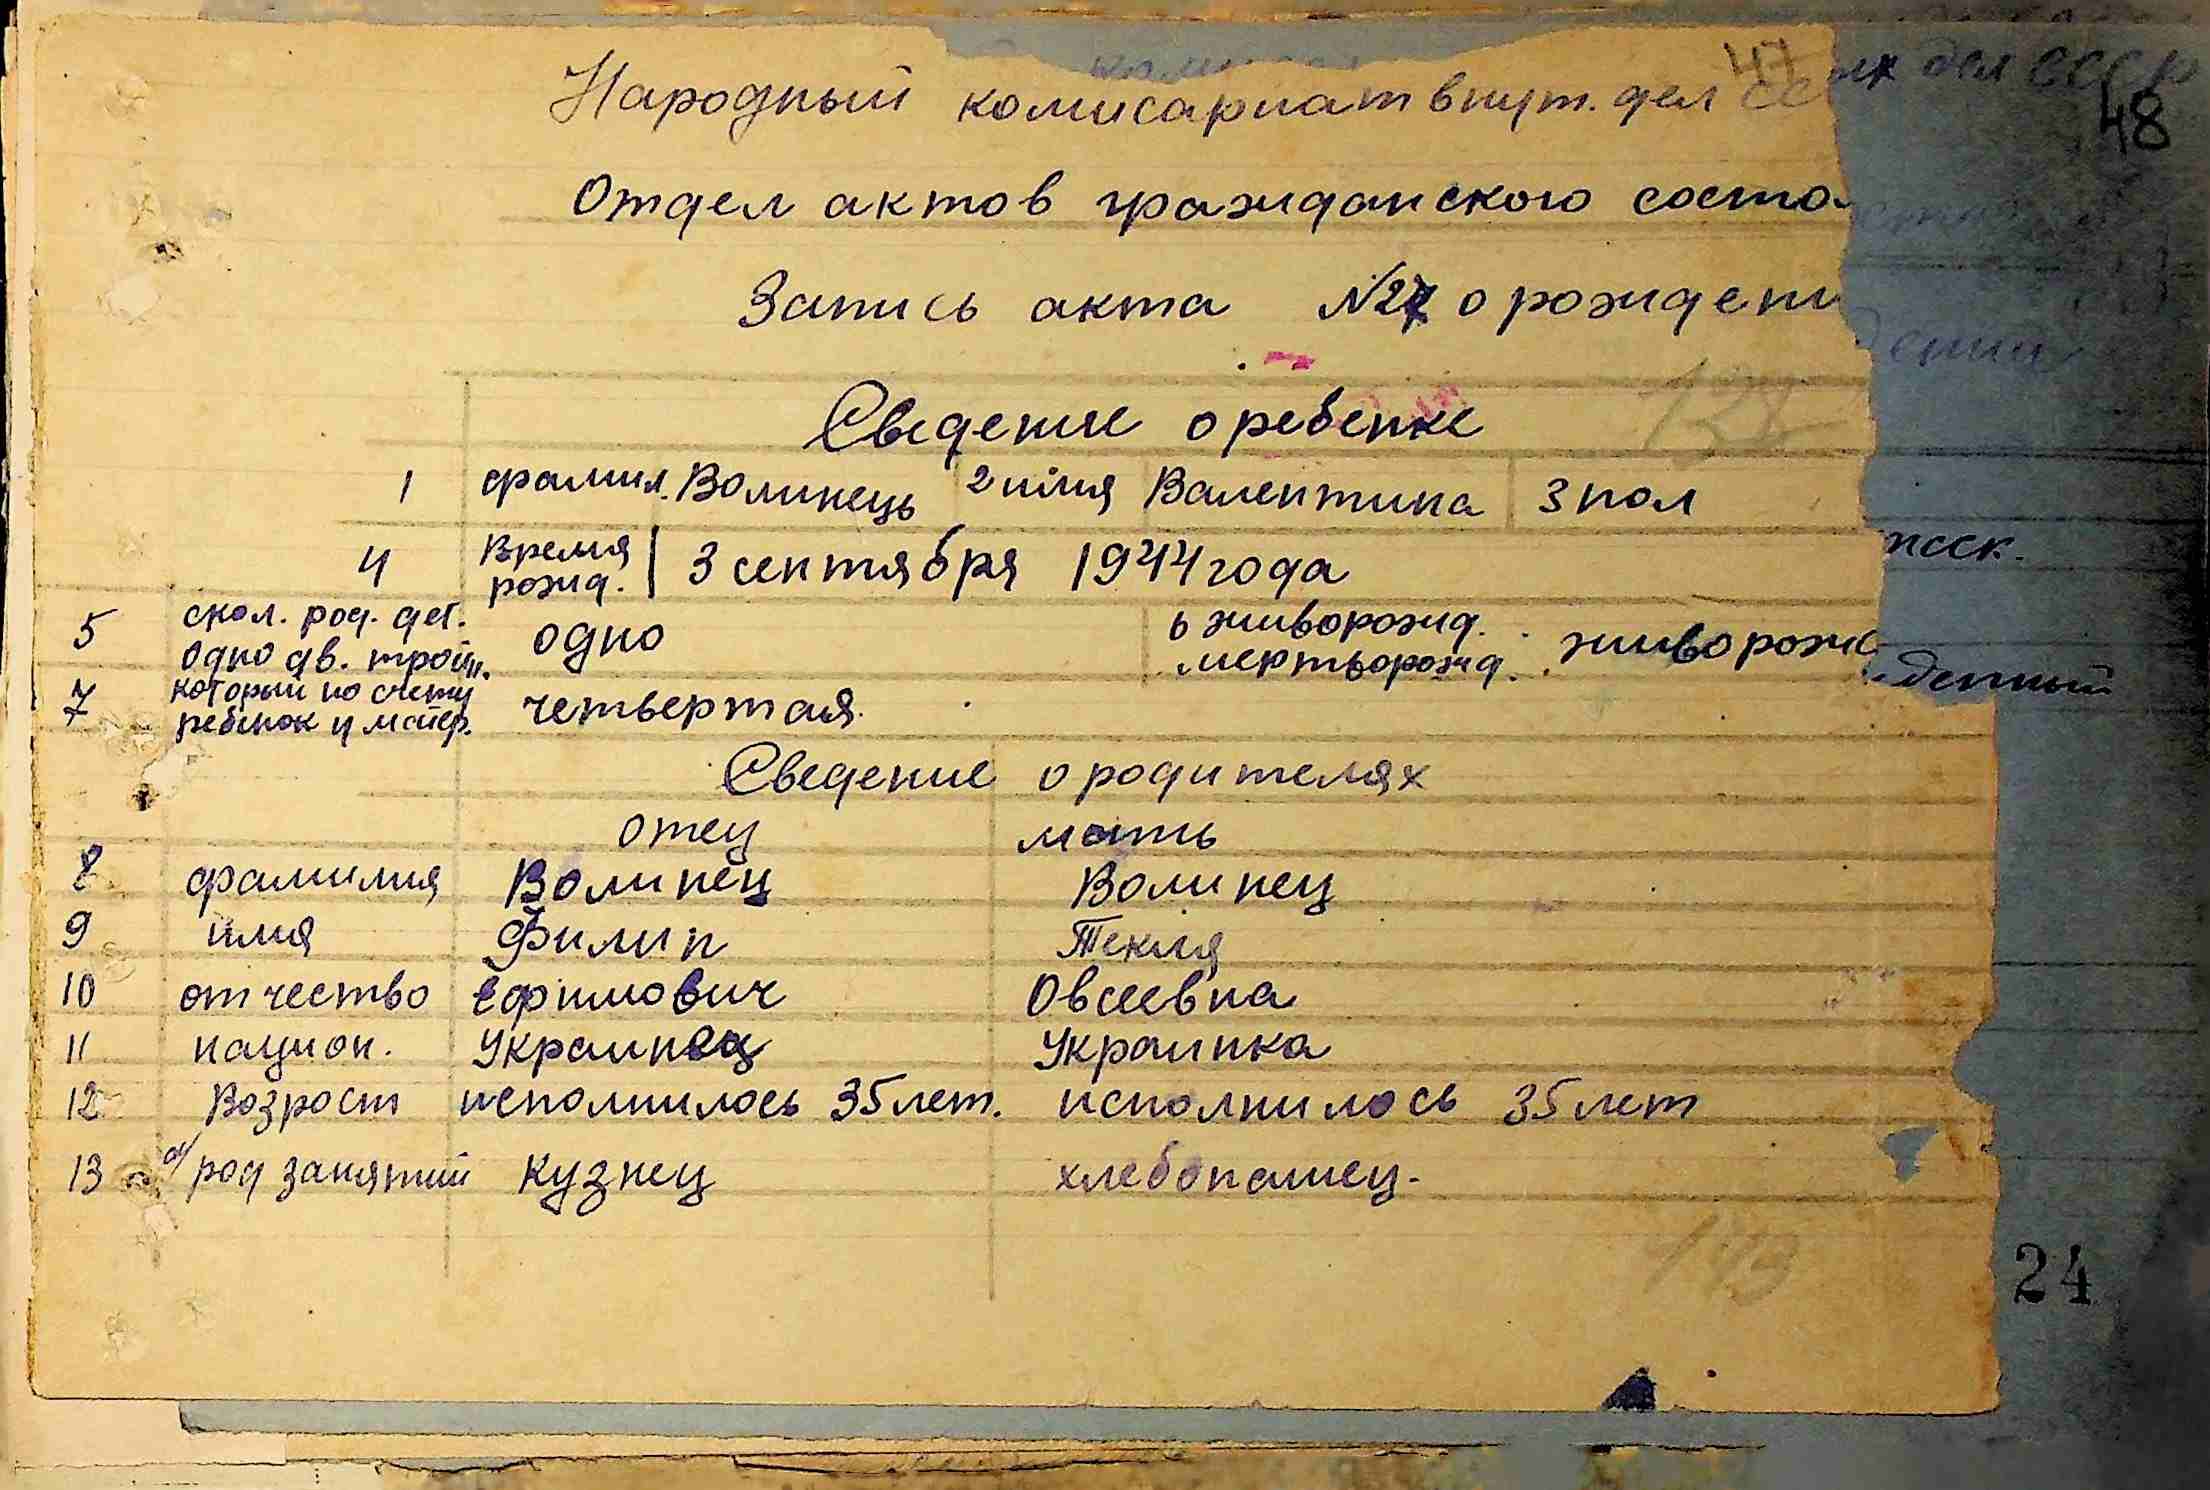 47
Народный комисариат внут. дел СС
ых дел СССР
48
Отдел актов гражданского состо
Запись акта №27 о рождени
дении
Сведение о ребенке
138
1 фамил. Волинець 2 імія Валентина 3 пол
4 Время рожд. 3 сентября 1944 года
5 скол. род. дет. одно дв. тройн. одно 6 живорожд. мертворожд. живорожд
денный
7 который по счету ребенок у матер. четвертая
Сведение о родителях
отец мать
8 фамилия Волинец Волинец
9 имя Филип Текля
10 отчество Ефимович Овсеевна
11 национ. Украинец Украинка
12 Возраст исполнилось 35 лет. исполнилось 35 лет
13 а/ род занятий кузнец хлебопашец.
143
24